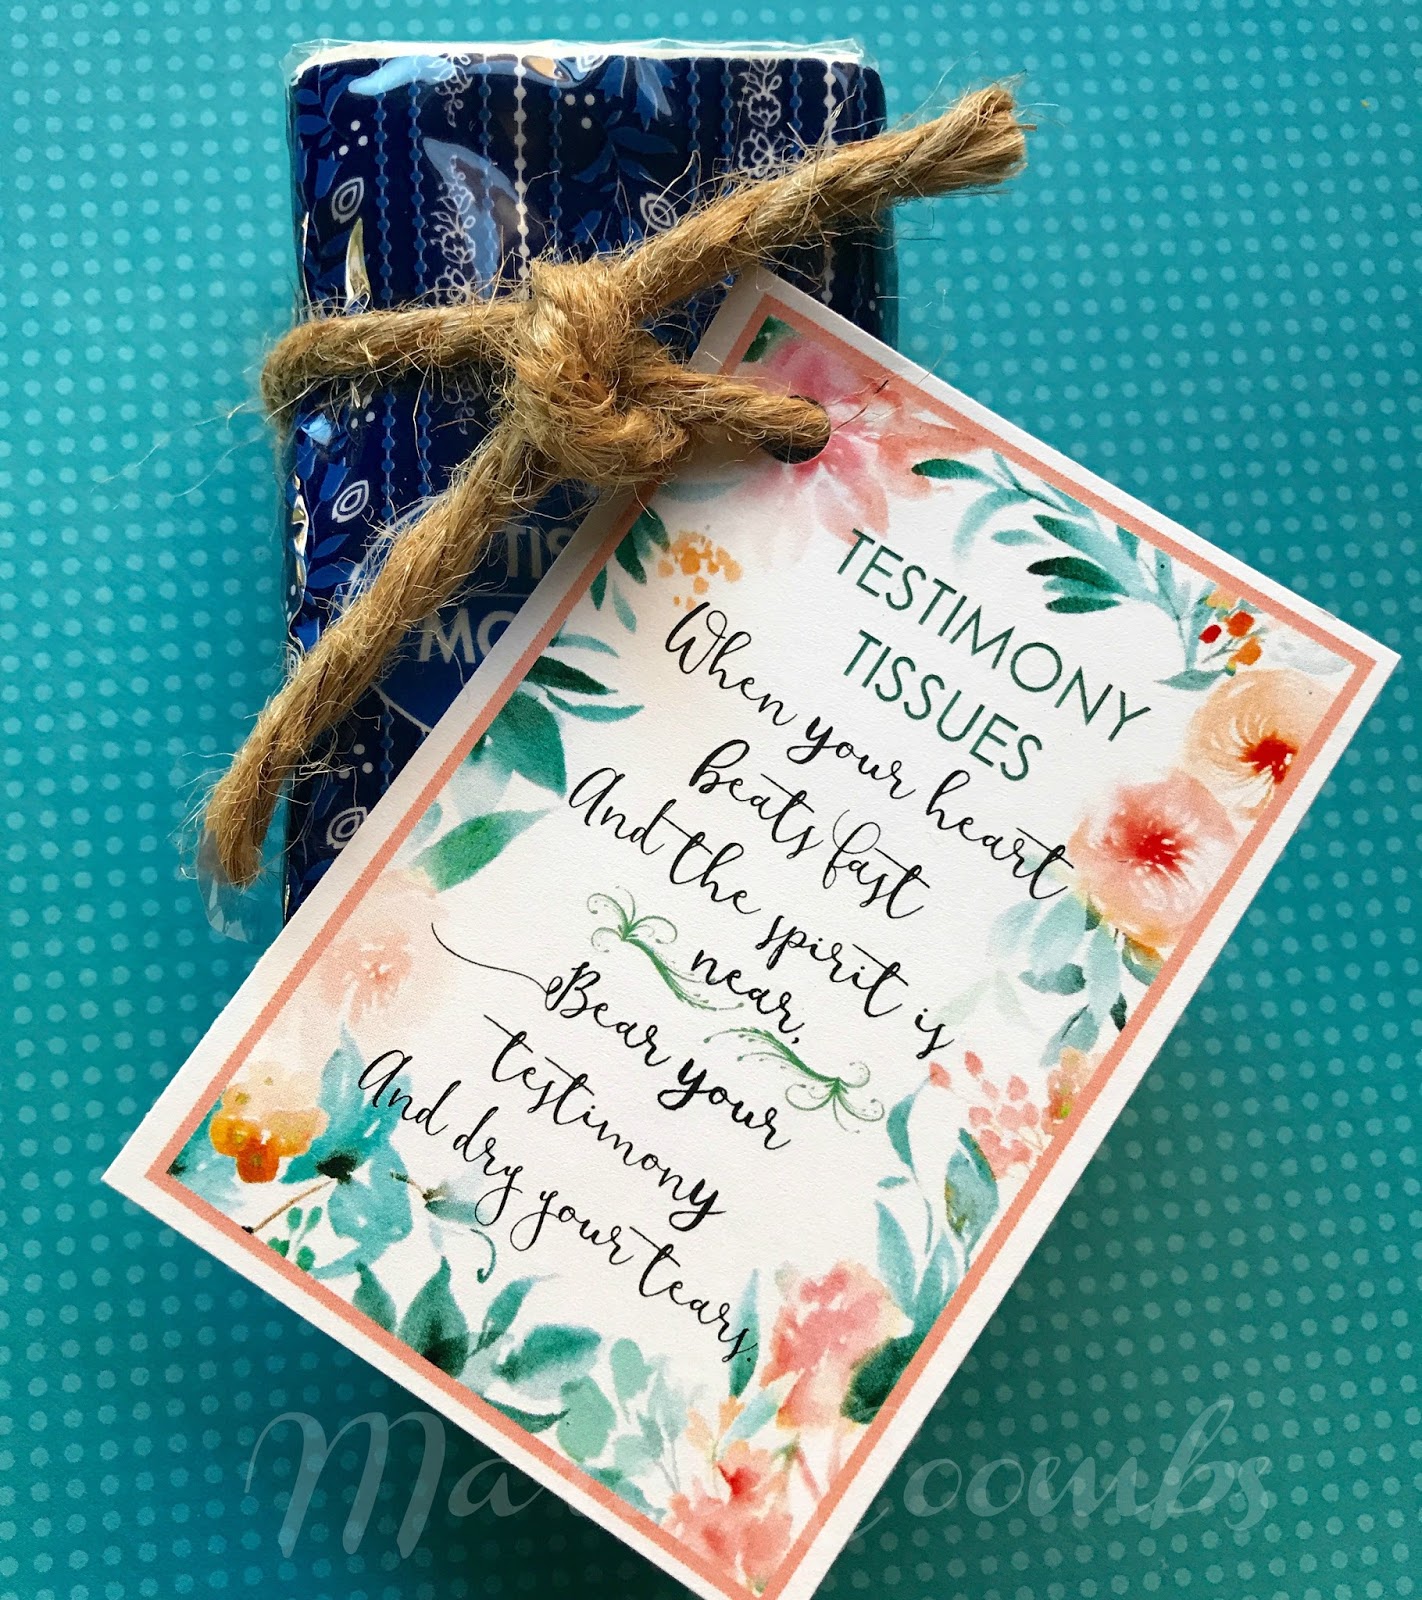 TESTIMONY
TISSUES
When your heart
beats fast
And the spirit is
near,
Bear your
testimony
And dry your tears.